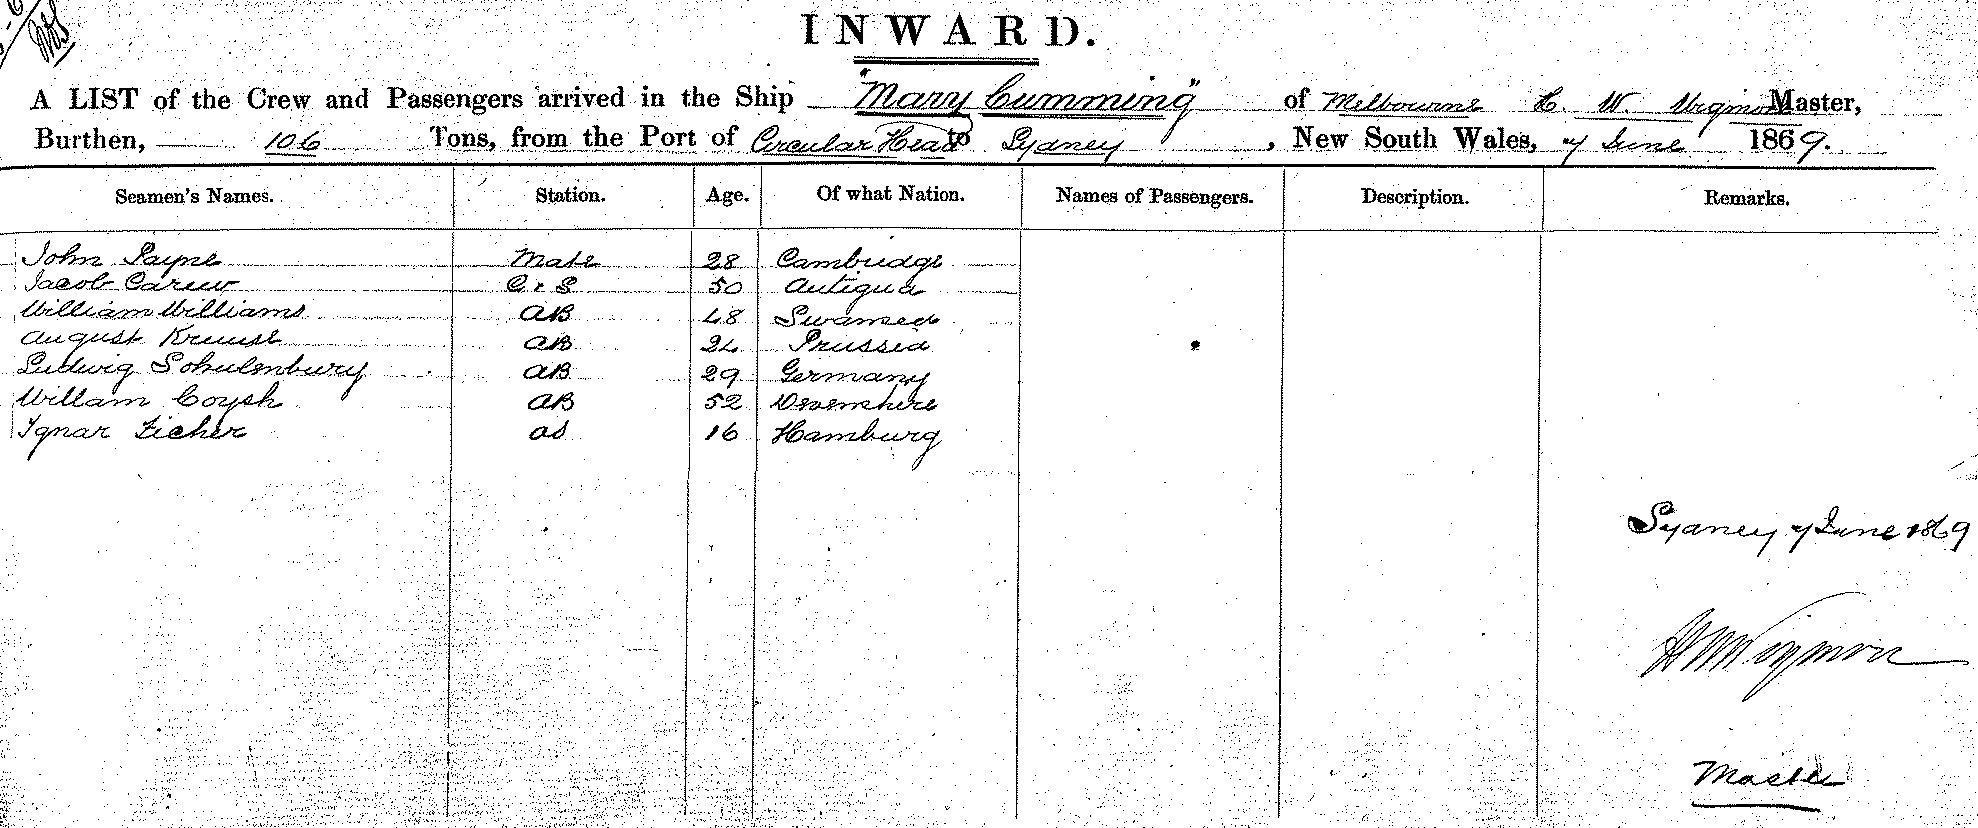 INWARD.
A LIST of the Crew and Passengers arrived in the Ship "Mary Cumming" of Melbourne H. W. Master,
Burthen, 106 Tons, from the Port of Circular Head to Sydney, New South Wales, 7 June 1869.
Seamen's Names. Station. Age. Of what Nation. Names of Passengers. Description. Remarks.
John Payne Mate 28 Cambridge
Jacob Carew C & S 50 Antigua
William Williams AB 48 Swansea
August Krause AB 24 Prussia
Ludwig Schulenbury AB 29 Germany
Willam Coysh AB 52 Devenshire
Ignar Ficher OS 16 Hamburg
Sydney 7 June 1869
Master